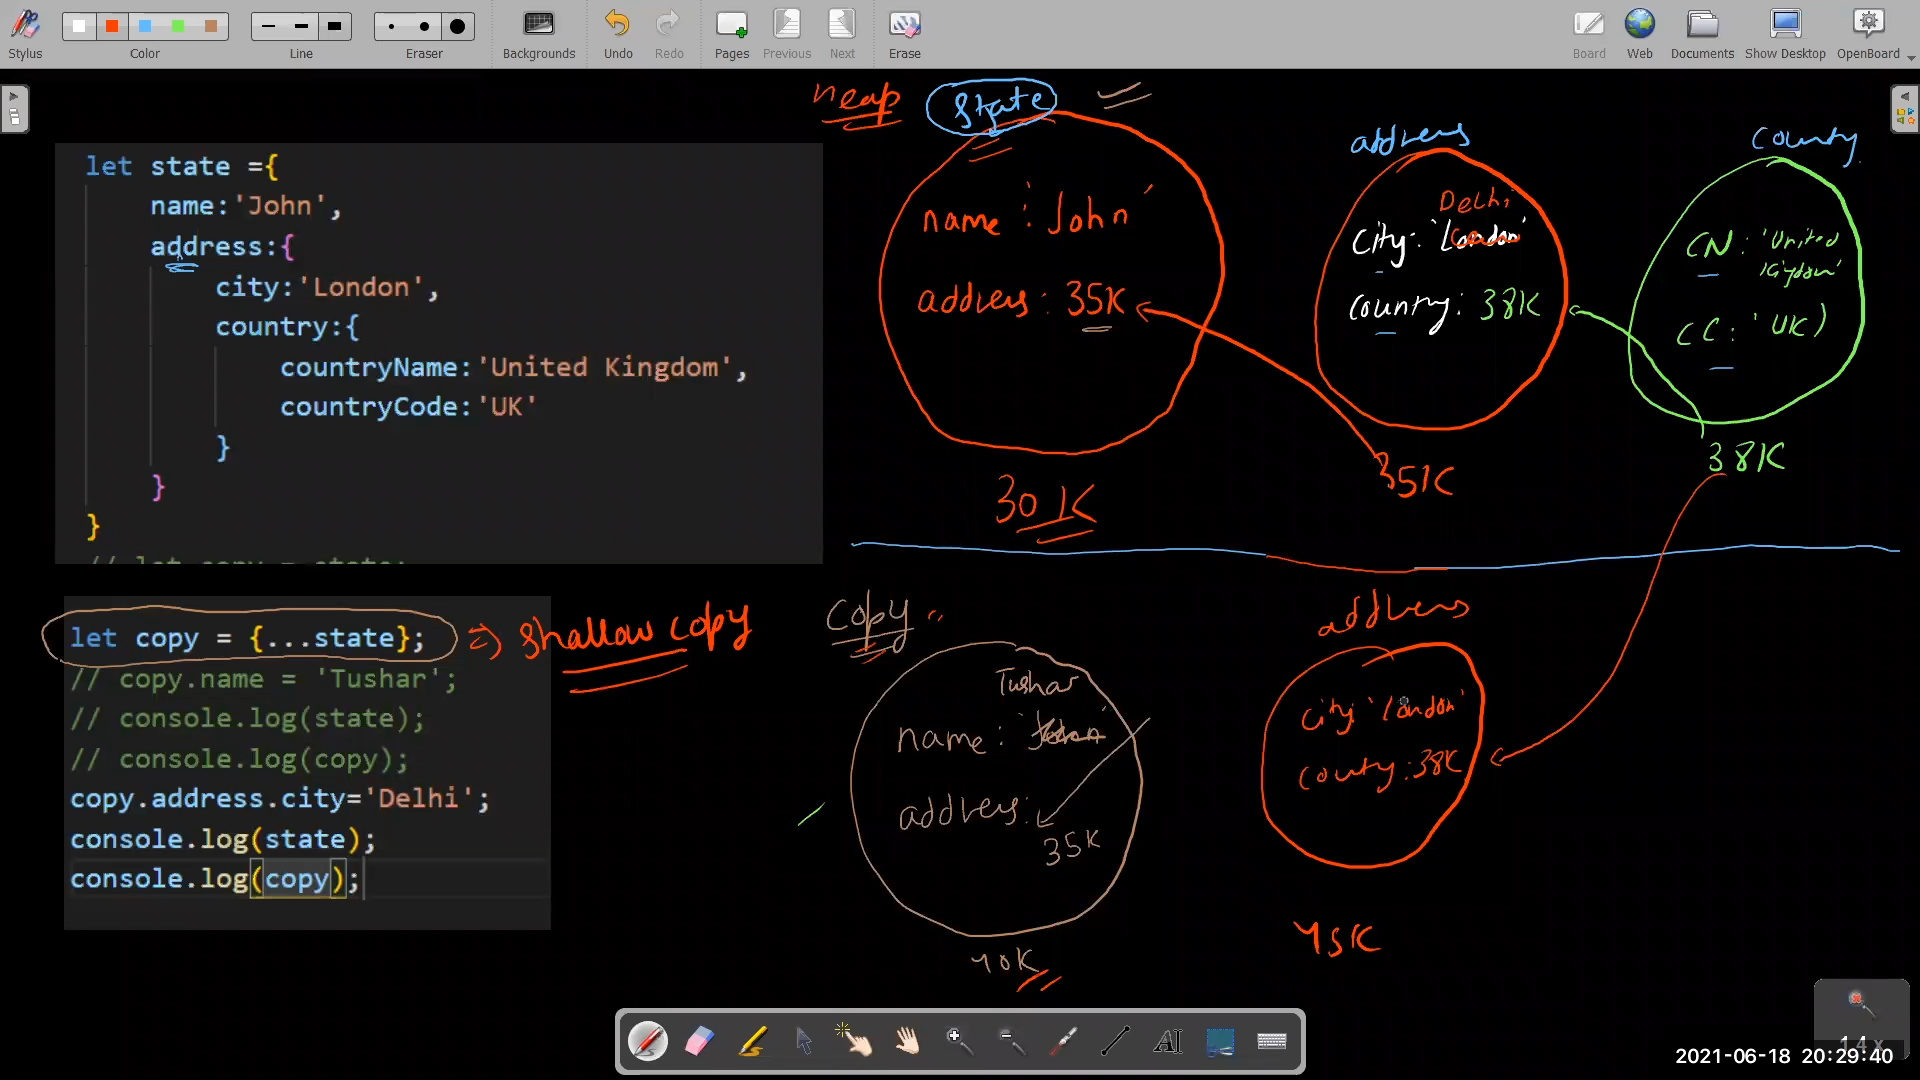 Stylus
Color
Line
Eraser
Backgrounds
Undo
Redo
Pages
Previous
Next
Erase
Board
Web
Documents
Show Desktop
OpenBoard
let state ={
name:'John',
address:{
city:'London',
country:{
countryName:'United Kingdom',
countryCode:'UK'
}
}
}
// let copy = state;
let copy = {...state};
// copy.name = 'Tushar';
// console.log(state);
// console.log(copy);
copy.address.city='Delhi';
console.log(state);
console.log(copy);
=> shallow copy
heap
state
name : 'John'
address : 35K
30K
address
Delhi
City: 'London'
Country: 38K
35K
County
CN : 'United
Kingdom'
CC : 'UK)
38K
Copy
Tushar
name : 'John'
address:
35K
40K
address
city: 'London'
county: 38K
45K
1.4 x
2021-06-18 20:29:40